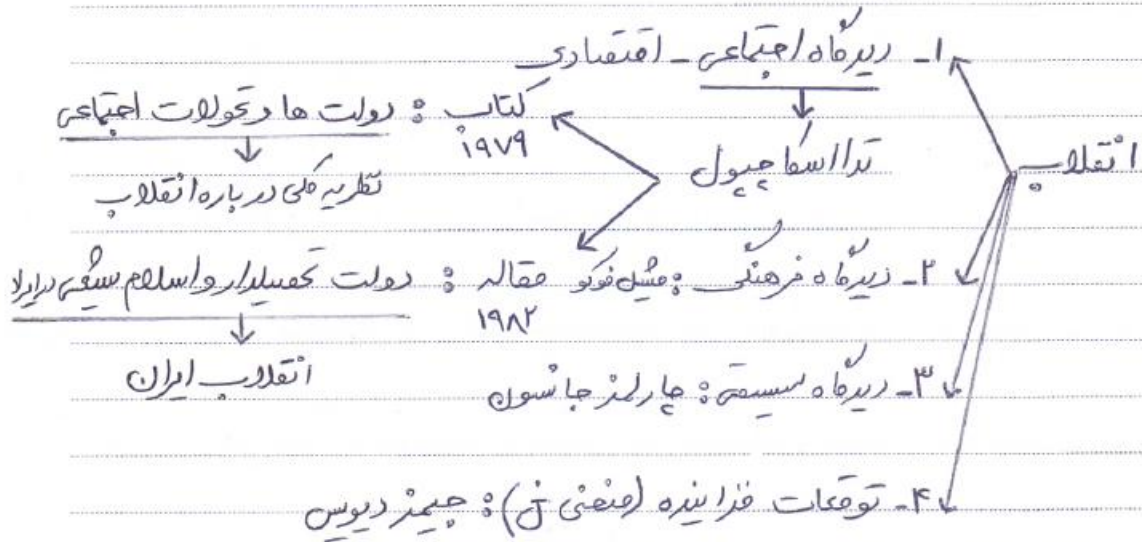 ۱- دیدگاه اجتماعی - اقتصادی
کتاب : دولت ها و تحولات اجتماعی
۱۹۷۹
انقلاب
تدا اسکاچپول
نظریه کلی درباره انقلاب
۲- دیدگاه فرهنگی : میشل فوکو مقاله : دولت تحصیلدار و اسلام شیعی در ایران
۱۹۸۲
انقلاب ایران
۳- دیدگاه سیستمی : چارلمز جانسون
۴- توقعات فزاینده (منحنی J) : جیمز دیویس